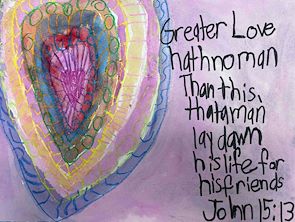 Greater Love
hath no man
Than this,
that a man
lay down
his life for
his friends
John 15:13